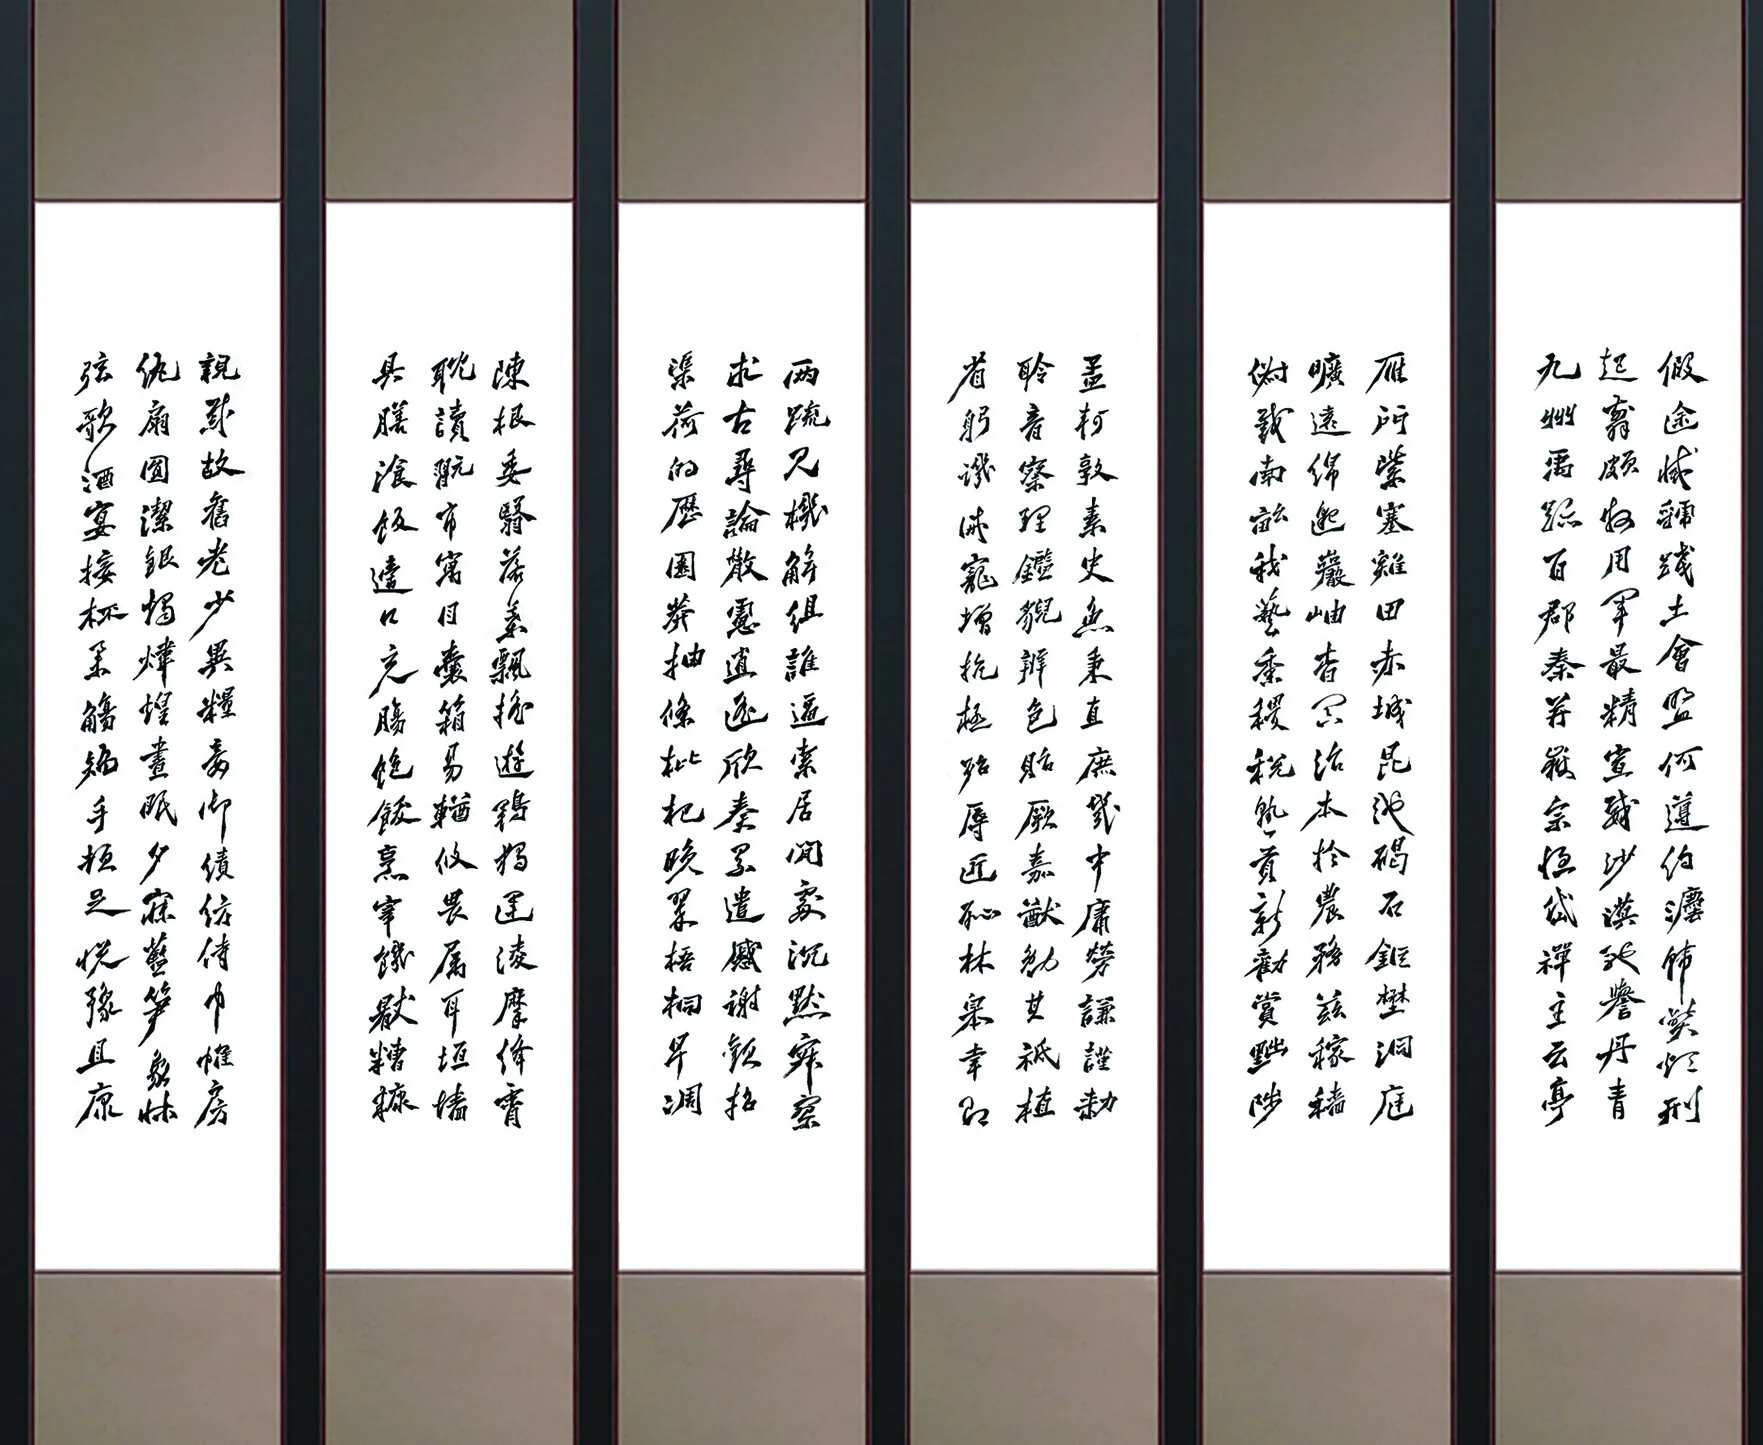 假途滅虢踐土會盟何遵約法韓弊煩刑
起翦頗牧用軍最精宣威沙漠馳譽丹青
九州禹跡百郡秦并嶽宗恒岱禪主云亭
雁門紫塞雞田赤城昆池碣石鉅埜洞庭
曠遠綿邈巖岫杳冥治本於農務茲稼穡
俶載南畝我藝黍稷稅熟貢新勸賞黜陟
孟軻敦素史魚秉直庶幾中庸勞謙謹勅
聆音察理鑑貌辨色貽厥嘉猷勉其祗植
省躬譏誡寵增抗極殆辱近恥林皋幸即
两疏見機解組誰逼索居閒處沉默寂寥
求古尋論散慮逍遙欣奏累遣慼謝歡招
渠荷的歷園莽抽條枇杷晚翠梧桐早凋
陳根委翳落葉飄搖遊鵾獨運淩摩絳霄
耽讀翫市寓目囊箱易輶攸畏属耳垣墻
具膳飡飯適口充腸飽飫烹宰饑厭糟糠
親戚故舊老少異糧妾御績紡侍巾帷房
紈扇圓潔銀燭煒煌晝眠夕寐藍筍象牀
弦歌酒宴接杯舉觴矯手頓足悅豫且康